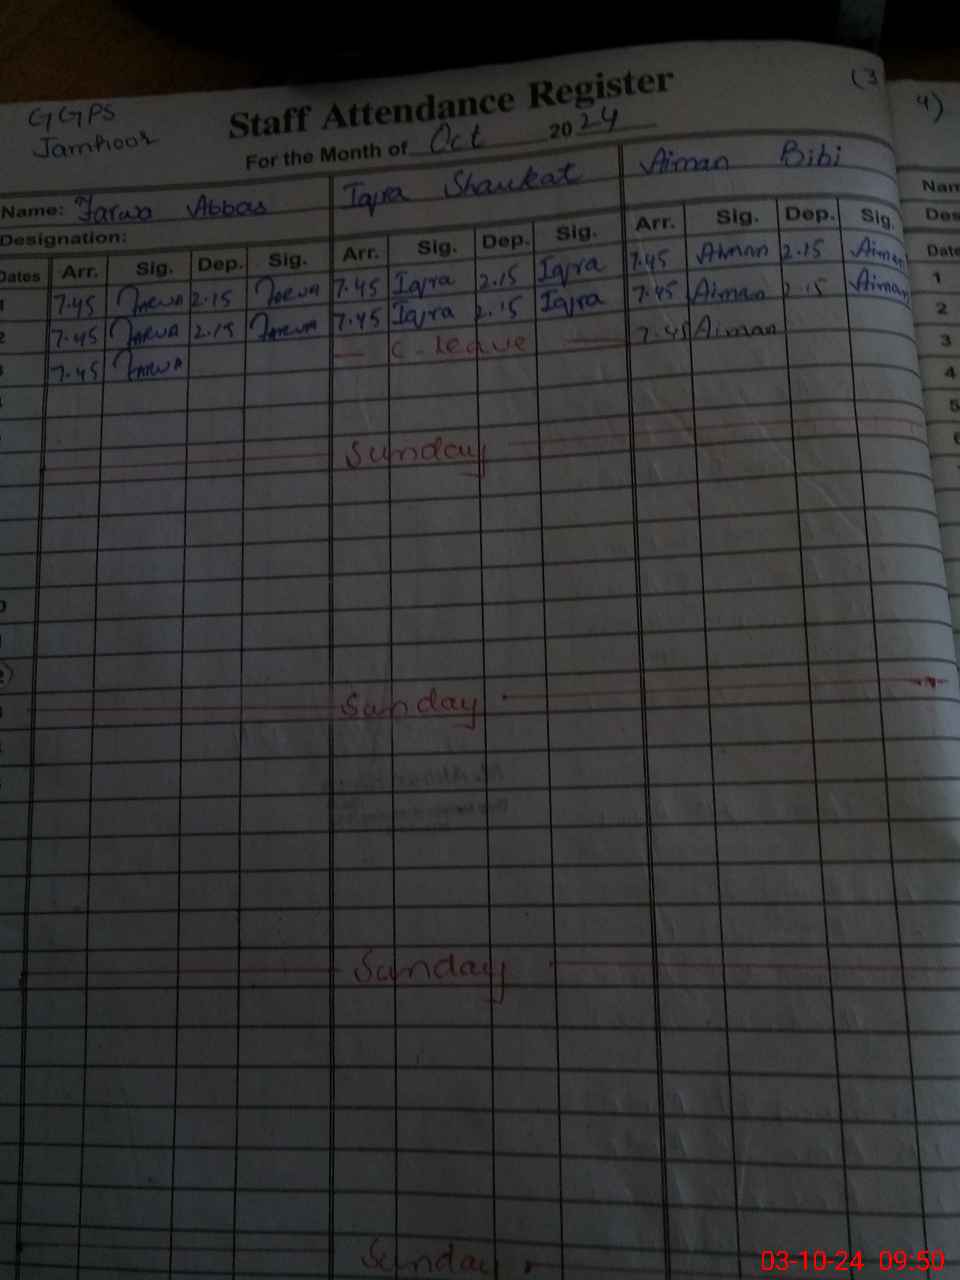 GGPS
Jamhoor
Staff Attendance Register
(3
For the Month of Oct 2024
4)
Name: Farwa Abbas Iqra Shaukat Aiman Bibi
Nam
Designation:
Des
Dates Arr. Sig. Dep. Sig. Arr. Sig. Dep. Sig. Arr. Sig. Dep. Sig.
Date
1 7.45 Farwa 2.15 Farwa 7.45 Iqra 2.15 Iqra 7.45 Aiman 2.15 Aiman
1
2 7.45 Farwa 2.15 Farwa 7.45 Iqra 2.15 Iqra 7.45 Aiman 2.15 Aiman
2
7.45 Farwa C. leave 7.45 Aiman
3
4
5
Sunday
Sunday
Sunday
Sunday
03-10-24 09:50